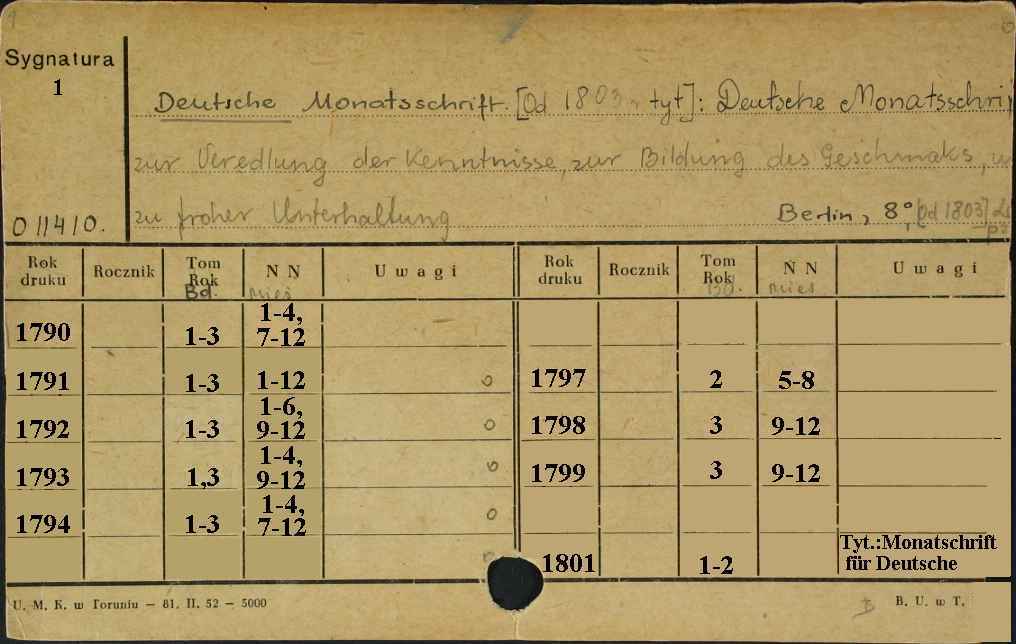 Sygnatura
1
Deutsche Monatsschrift. [Od 1803 tyt]: Deutsche Monatsschri
zur Veredlung der Kenntnisse, zur Bildung des Geschmaks, u
zu froher Unterhaltung
Berlin, 8° [Od 1803]
011410.
Rok druku Rocznik Tom Rok Bd. N N mies Uwagi Rok druku Rocznik Tom Rok Bd. N N mies Uwagi
1790 1-3 1-4, 7-12
1791 1-3 1-12 1797 2 5-8
1792 1-3 1-6, 9-12 1798 3 9-12
1793 1,3 1-4, 9-12 1799 3 9-12
1794 1-3 1-4, 7-12
1801 1-2 Tyt.:Monatschrift für Deutsche
U. M. K. w Toruniu – 81. II. 52 – 5000
B. U. w T.